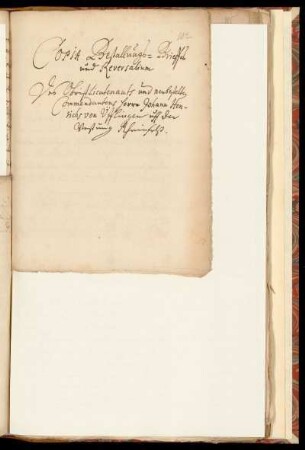 Copia Bestallungs-Brieffs
und Reversalium
Des Obristlieutenants und
Commendantens Herrn Johann Hen-
richs von uff der
Vestung Rheinfelß.